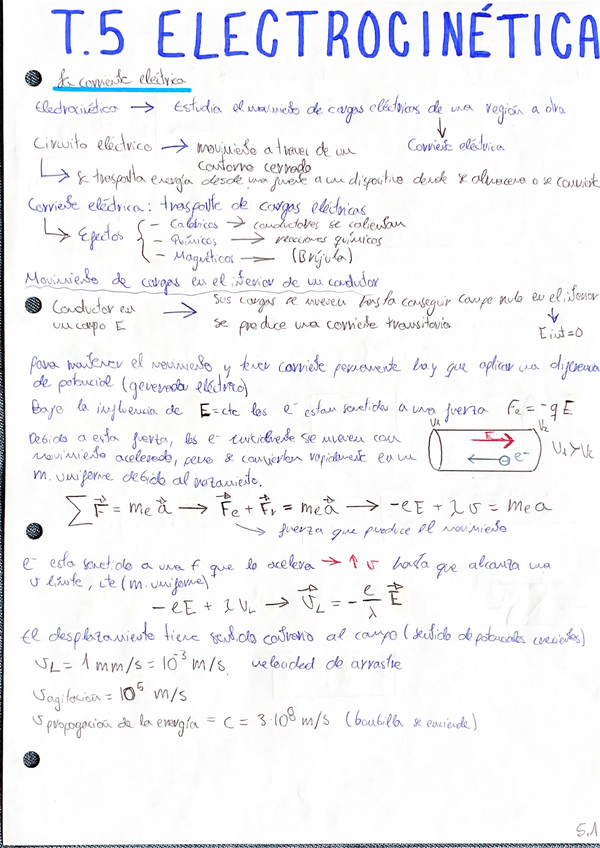 T.5 ELECTROCINÉTICA
La corriente eléctrica
Electrocinética → Estudia el movimiento de cargas eléctricas de una región a otra
Corriente eléctrica
Circuito eléctrico → movimiento a traves de un
contorno cerrado
↳ se trasporta energía desde una fuente a un dispositivo donde se almacena o se convierte
Corriente eléctrica: trasporte de cargas eléctricas
↳ Efectos { – Caloríficos → conductores se calientan
– Químicos → reacciones químicos
– Magnéticos → (Brújula)
Movimiento de cargas en el interior de un conductor
Conductor en → Sus cargas se mueven hasta conseguir campo nulo en el interior
un campo E se produce una corriente transitoria E int = 0
Para mantener el movimiento y tener corriente permanente hay que aplicar una diferencia
de potencial (generador eléctrico)
Bajo la influencia de E = cte los e⁻ estan sometidos a una fuerza Fe = -q E
V₁ V₂
Debido a esta fuerza, los e⁻ inicialmente se mueven con
E
movimiento acelerado, pero se convierten rapidamente en un
e⁻ V₁ > V₂
m. uniforme debido al rozamiento.
∑ F⃗ = me a⃗ → F⃗e + F⃗r = me a⃗ → -eE + λ v = me a
↳ fuerza que produce el movimiento
e⁻ esta sometido a una f que lo acelera → ↑ v hasta que alcanza una
v límite, cte (m. uniforme)
-eE + λ VL → v⃗L = - e/λ E⃗
El desplazamiento tiene sentido contrario al campo (sentido de potenciales crecientes)
vL = 1 mm/s = 10⁻³ m/s. velocidad de arrastre
v agitación = 10⁵ m/s
v propagación de la energía = c = 3·10⁸ m/s (bombilla se enciende)
5.1